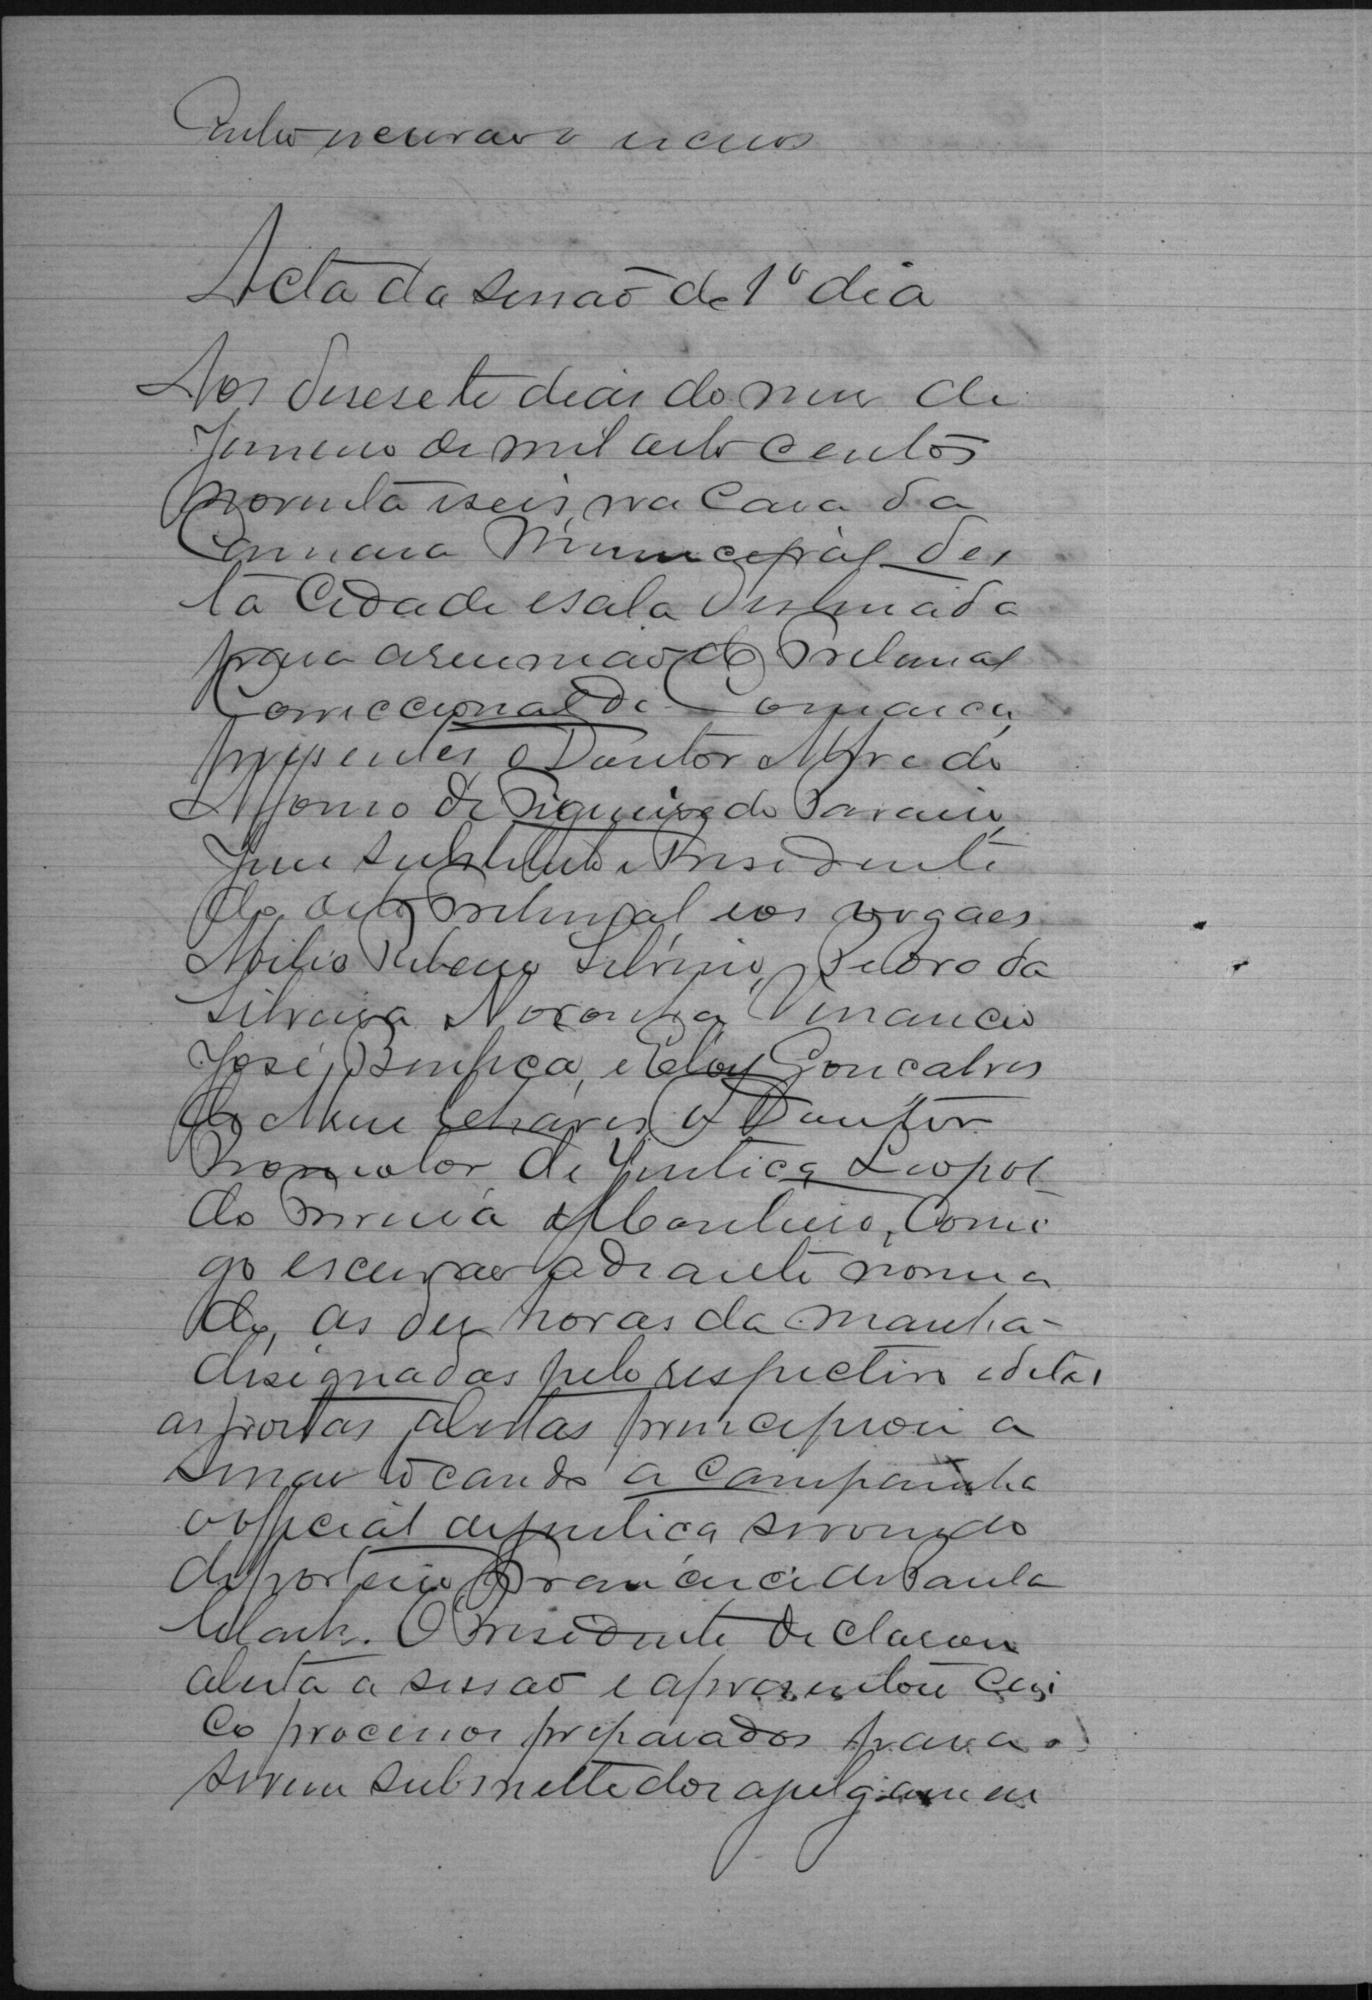 Acta da sessaõ de 1º dia
Aos desesete dias do mes de
Janeiro de mil oito centos
noventa e seis, na Casa da
Camara Municipal des
ta Cidade e sala destinada
para a reuniaõ do Tribunal
Correccional da Comarca,
presentes o Doutor Alfredo
Affonso de
Juis substituto e Presidente
do dito Tribunal e os vogaes
Abilio Ribeiro Silverio, Pedro da
Silveira Noronha Venancio
José Bemfica, e Eloy Goncalves
de Chaves o Doutor
Promotor de Justiça Leopol
do Comi
go escrivaõ adiante nomea
do, as des horas da manhã
designadas pelo respectivo edital
as portas abertas principiou a
sessaõ tocando a campainha
o official de justica servindo
de porteiro Francisco de Paula
O Presidente declarou
aberta a sessaõ e apresentou cin
co processos preparados para
serem submettidos a julgamen